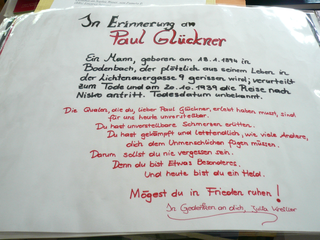 In Erinnerung an
Paul Glückner
Ein Mann, geboren am 18.1.1894 in
Bodenbach, der plötzlich aus seinem Leben in
der Lichtenauergasse 9 gerissen wird; verurteilt
zum Tode und am 20.10.1939 die Reise nach
Nisko antritt. Todesdatum unbekannt.
Die Qualen, die du, lieber Paul Glückner, erlebt haben musst, sind
für uns heute unvorstellbar.
Du hast unvorstellbare Schmerzen erlitten.
Du hast gekämpft und letztendlich, wie viele Andere,
dich dem Unmenschlichen fügen müssen.
Darum sollst du nie vergessen sein.
Denn du bist Etwas Besonderes.
Und heute bist du ein Held.
Mögest du in Frieden ruhen!
In Gedenken an dich,